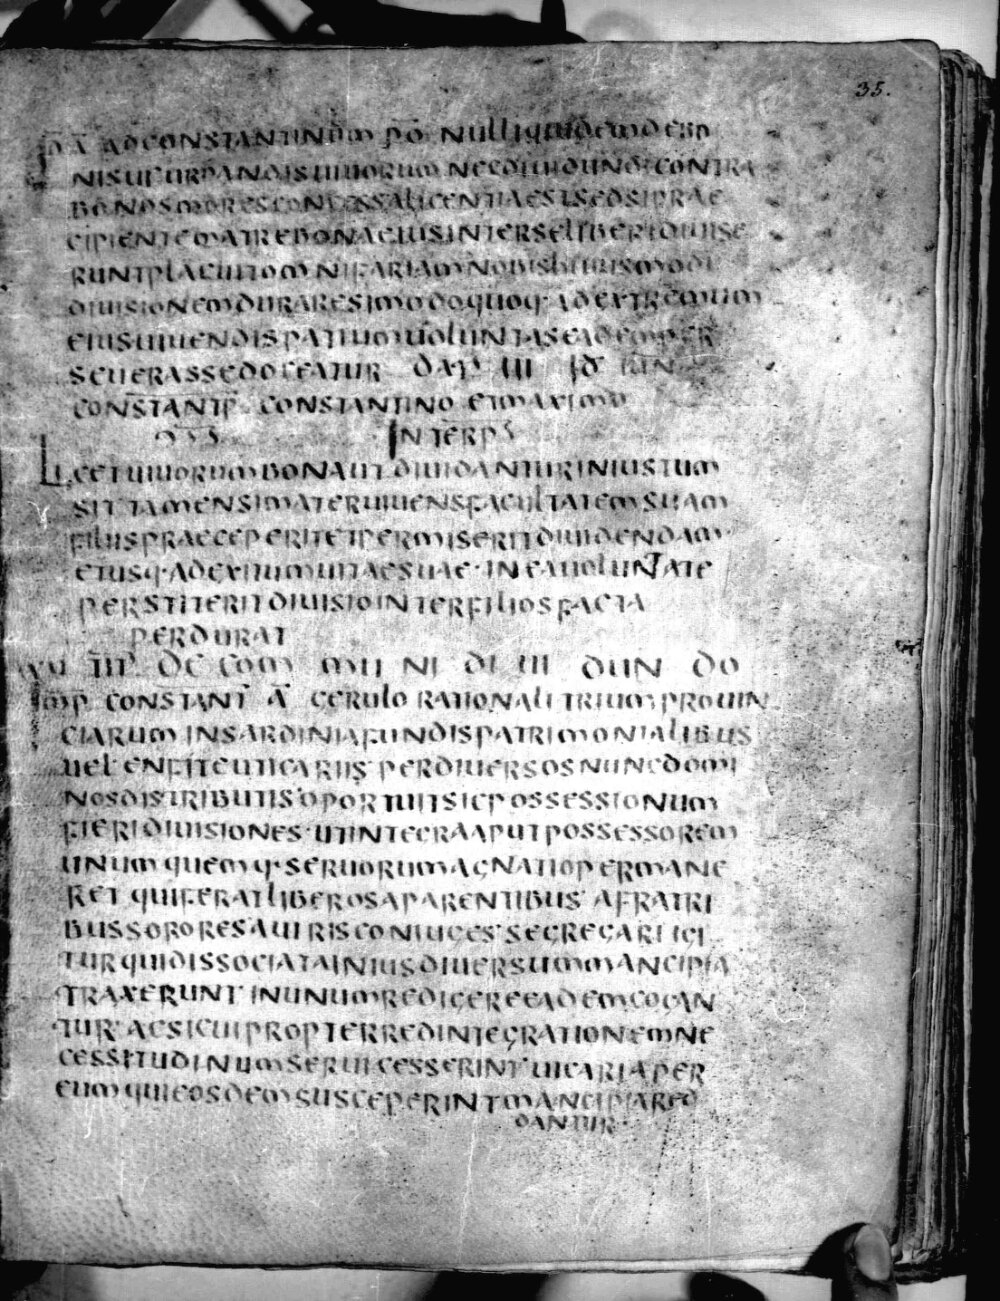 35.
IDĒ Ā AD CONSTANTINUM PO NULLI QUIDEM DE BO
NIS USURPANDIS UIUORUM NEC DIUIDUNDIS CONTRA
BONOS MORES CONCESSA LICENTIA EST SED SI PRAE
CIPIENTE MATRE BONA EIUS INTER SE LIBERI DIUISE
RUNT PLACUIT OMNIFARIAM NOBIS HUIUSMODI
DIUISIONEM DURARE SI MODO QUOQ· AD EXTREMUM
EIUS UIUENDI SPATIUM UOLUNTAS EADEM PER
SEUERASSE DOCEATUR DAT III ID IUN
CONSTANTP CONSTANTINO ET MAXIMO
INTERP
LICET UIUORUM BONA UT DIUIDANTUR INIUSTUM
SIT TAMEN SI MATER UIUENS FACULTATEM SUAM
FILIIS PRAECEPERIT ET PERMISERIT DIUIDENDAM·
EIUSQ· AD EXITUM UITAE SUAE· IN EA UOLUNTATE
PERSTITERIT DIUISIO INTER FILIOS FACTA
PERDURAT
COM MU NI DI UI DUN DO
IMP CONSTANT Ā CERULO RATIONALI TRIUM PROUIN
CIARUM IN SARDINIA FUNDIS PATRIMONIALIBUS
UEL ENFITEUTICARIIS PER DIUERSOS NUNC DOMI
NOS DISTRIBUTIS OPORTUIT SIC POSSESSIONUM
FIERI DIUISIONES UT INTEGRA APUT POSSESSOREM
UNUM QUEMQ· SERUORUM AGNATIO PERMANE
RET QUIS FERAT LIBEROS A PARENTIBUS A FRATRI
BUS SORORES A UIRIS CONIUGES SEGREGARI IGI
TUR QUI DISSOCIATA IN IUS DIUERSUM MANCIPIA
TRAXERUNT IN UNUM REDIGERE EADEM COGAN
TUR AC SI CUI PROPTER REDINTEGRATIONEM NE
CESSITUDINUM SERUI CESSERINT UICARIA PER
EUM QUI EOSDEM SUSCEPERINT MANCIPIA RED
DANTUR·